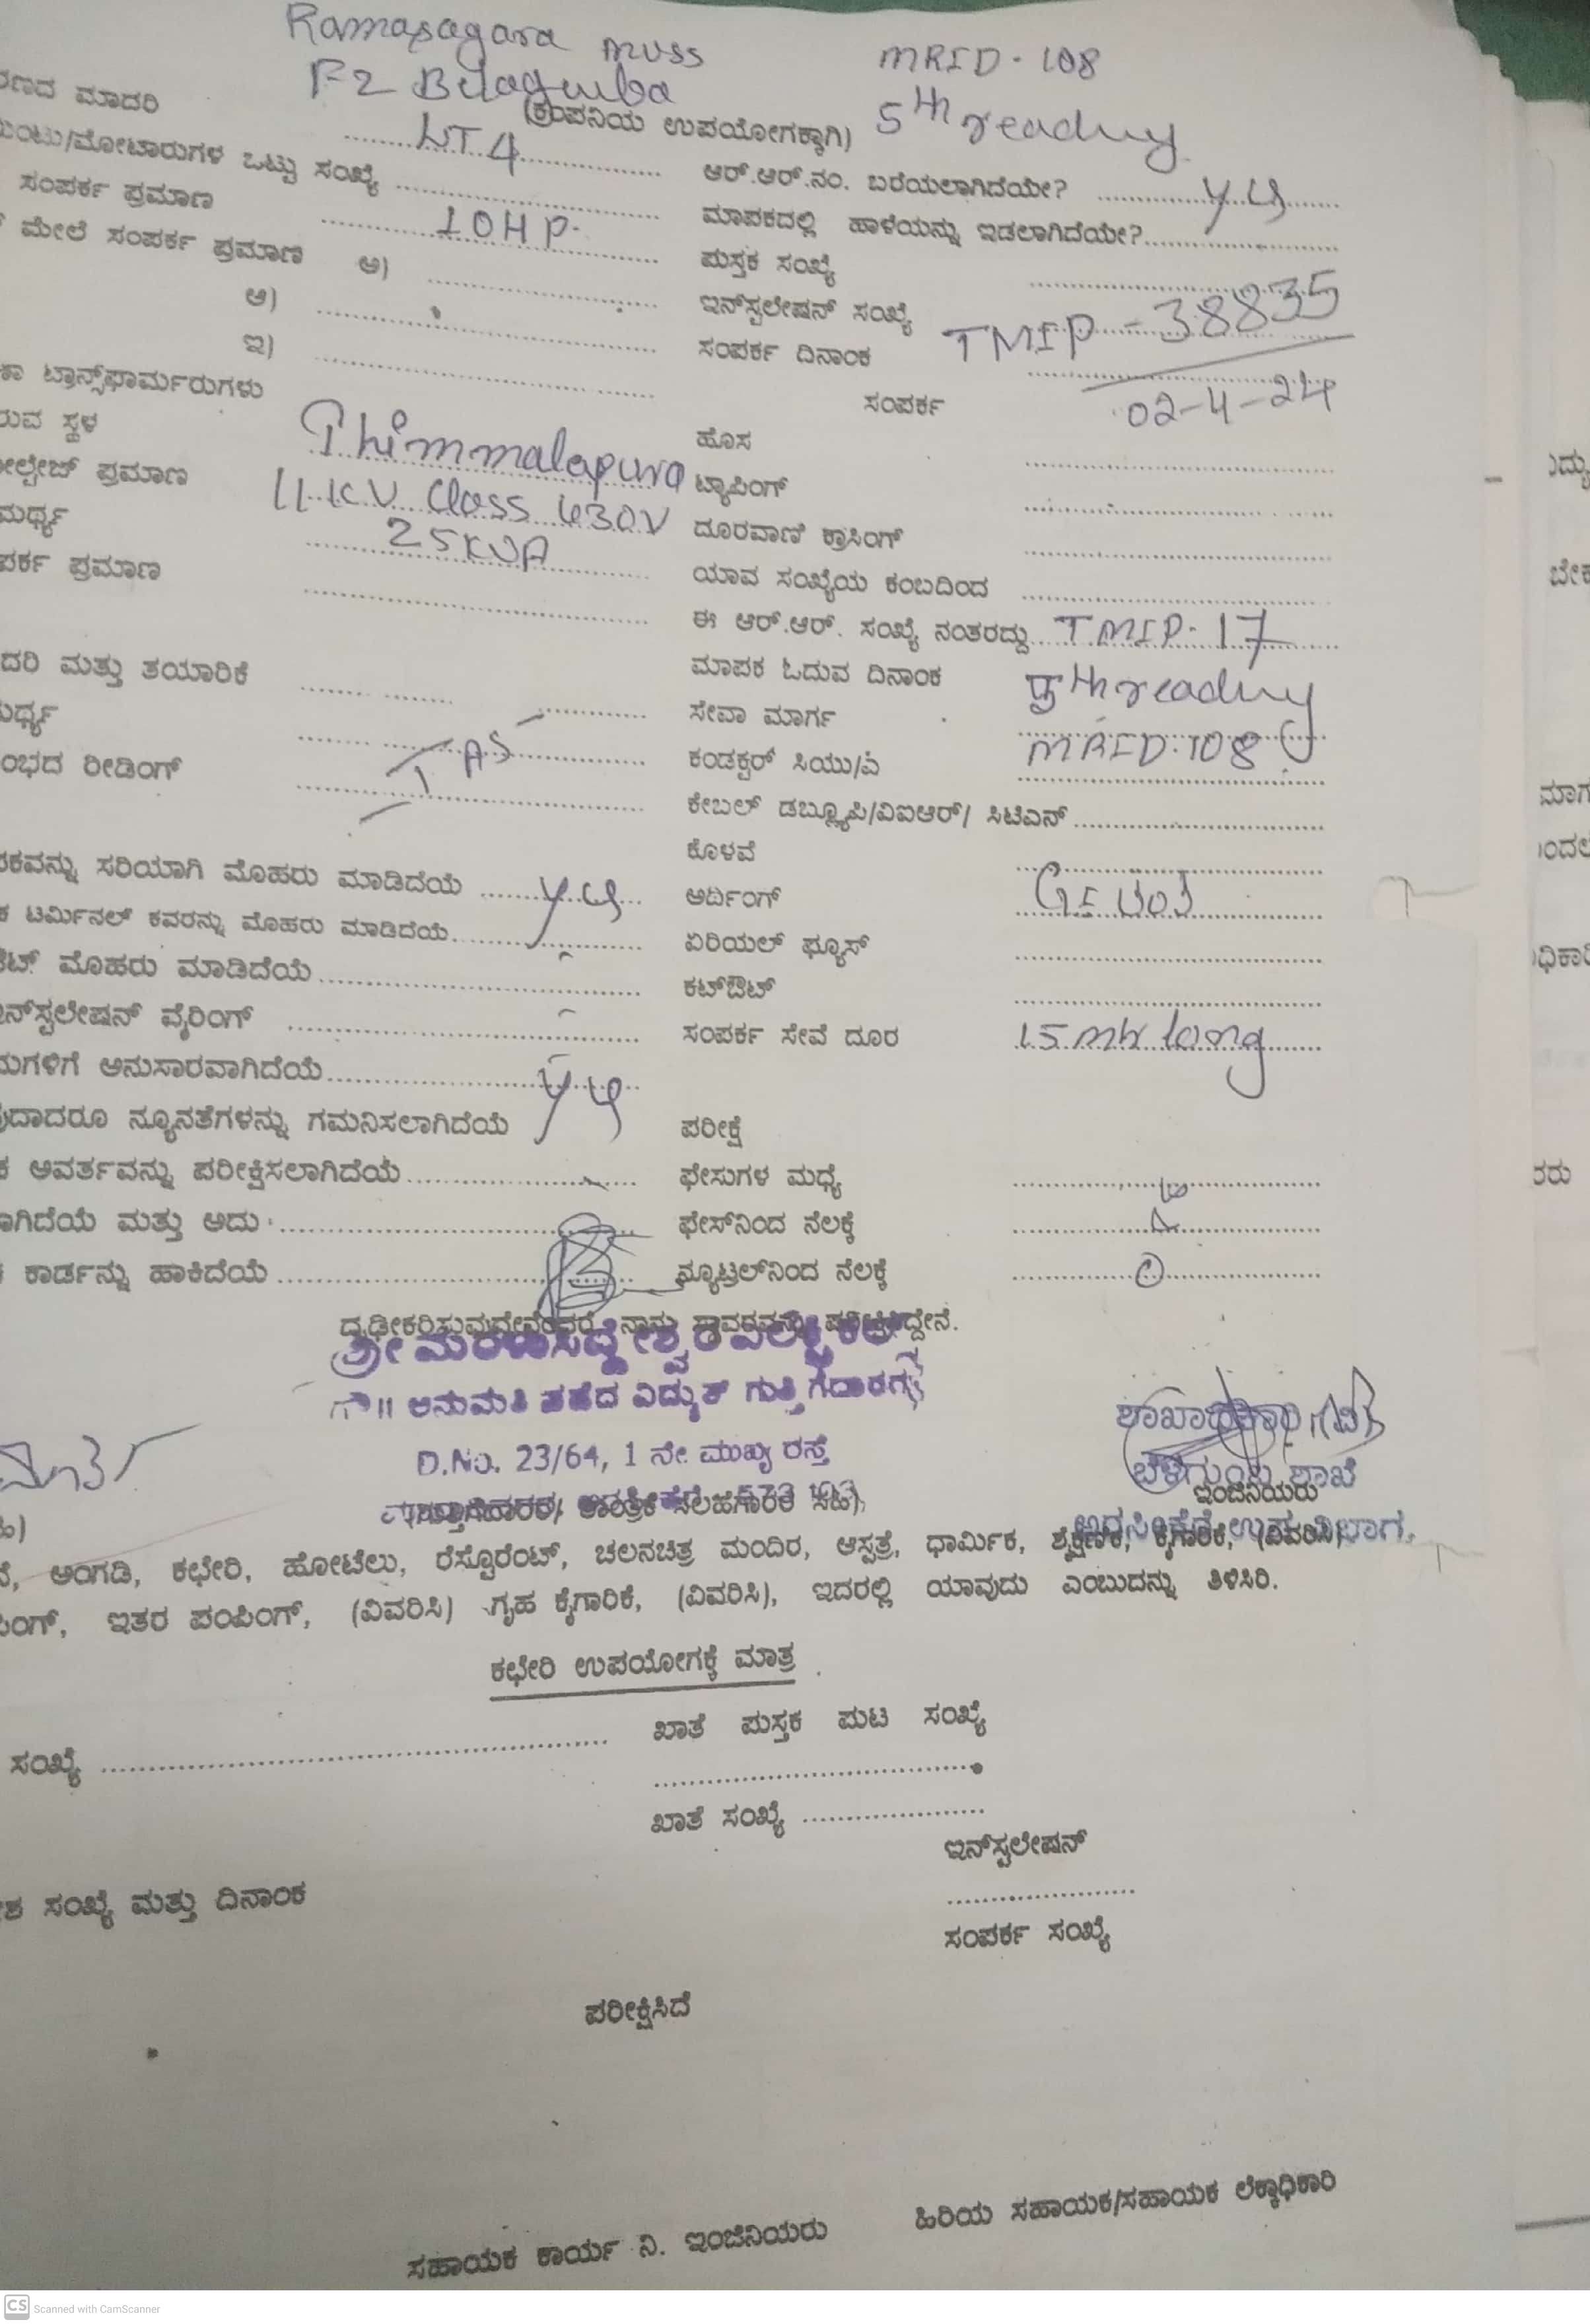 Ramasagara MUSS MRID-108
F2 Belagumba 5th reading
ರಣದ ಮಾದರಿ (ಕಂಪನಿಯ ಉಪಯೋಗಕ್ಕಾಗಿ)
LT4
ಮಂಟು/ಮೋಟಾರುಗಳ ಒಟ್ಟು ಸಂಖ್ಯೆ ಆರ್.ಆರ್.ನಂ. ಬರೆಯಲಾಗಿದೆಯೇ?
ಸಂಪರ್ಕ ಪ್ರಮಾಣ 10HP. ಮಾಪಕದಲ್ಲಿ ಹಾಳೆಯನ್ನು ಇಡಲಾಗಿದೆಯೇ?
ಮೇಲೆ ಸಂಪರ್ಕ ಪ್ರಮಾಣ ಅ) ಪುಸ್ತಕ ಸಂಖ್ಯೆ
ಆ) ಇನ್‌ಸ್ಟಲೇಷನ್ ಸಂಖ್ಯೆ TMIP-38835
ಇ) ಸಂಪರ್ಕ ದಿನಾಂಕ
ಟ್ರಾನ್ಸ್‌ಫಾರ್ಮರುಗಳು ಸಂಪರ್ಕ 02-4-24
ರುವ ಸ್ಥಳ Thimmalapura ಹೊಸ
ಲ್ಟೇಜ್ ಪ್ರಮಾಣ 11KV Class 430V ಟ್ಯಾಪಿಂಗ್
ಮರ್ಥ್ಯ 25KVA ದೂರವಾಣಿ ಕ್ರಾಸಿಂಗ್
ಪರ್ಕ ಪ್ರಮಾಣ ಯಾವ ಸಂಖ್ಯೆಯ ಕಂಬದಿಂದ
ಈ ಆರ್.ಆರ್. ಸಂಖ್ಯೆ ನಂತರದ್ದು TMIP-17
ದರಿ ಮತ್ತು ತಯಾರಿಕೆ ಮಾಪಕ ಓದುವ ದಿನಾಂಕ 5th reading
ರ್ಥ್ಯ ಸೇವಾ ಮಾರ್ಗ
ಂಭದ ರೀಡಿಂಗ್ ಕಂಡಕ್ಟರ್ ಸಿಯು/ಎ MRID-108
ಕೇಬಲ್ ಡಬ್ಲ್ಯೂಪಿ/ವಿಐಆರ್/ ಸಿಟಿಎಸ್
ಕೊಳವೆ
ರಕವನ್ನು ಸರಿಯಾಗಿ ಮೊಹರು ಮಾಡಿದೆಯೆ ಅರ್ದಿಂಗ್
ಕ ಟರ್ಮಿನಲ್ ಕವರನ್ನು ಮೊಹರು ಮಾಡಿದೆಯೆ ಏರಿಯಲ್ ಫ್ಯೂಸ್
ಟ್ ಮೊಹರು ಮಾಡಿದೆಯೆ ಕಟ್‌ಔಟ್
ನ್‌ಸ್ಟಲೇಷನ್ ವೈರಿಂಗ್ ಸಂಪರ್ಕ ಸೇವೆ ದೂರ 15 mtr long
ಮಗಳಿಗೆ ಅನುಸಾರವಾಗಿದೆಯೆ
ವುದಾದರೂ ನ್ಯೂನತೆಗಳನ್ನು ಗಮನಿಸಲಾಗಿದೆಯೆ ಪರೀಕ್ಷೆ
ಕ ಆವರ್ತವನ್ನು ಪರೀಕ್ಷಿಸಲಾಗಿದೆಯೆ ಫೇಸುಗಳ ಮಧ್ಯೆ
ಾಗಿದೆಯೆ ಮತ್ತು ಅದು ಫೇಸ್‌ನಿಂದ ನೆಲಕ್ಕೆ
ಕಾರ್ಡನ್ನು ಹಾಕಿದೆಯೆ ನ್ಯೂಟ್ರಲ್‌ನಿಂದ ನೆಲಕ್ಕೆ
ದೃಢೀಕರಿಸುವುದೇನೆಂದರೆ ನಾನು
ಅನುಮತಿ ಪಡೆದ ವಿದ್ಯುತ್ ಗುತ್ತಿಗೆದಾರರು
D.No. 23/64, 1 ನೇ ಮುಖ್ಯ ರಸ್ತೆ
ಬೆಳಗುಂಬ ಶಾಖೆ
ಇಂಜಿನಿಯರು
ಅರಸೀಕೆರೆ ಉಪ ವಿಭಾಗ,
ಅಂಗಡಿ, ಕಛೇರಿ, ಹೋಟೆಲು, ರೆಸ್ಟೊರೆಂಟ್, ಚಲನಚಿತ್ರ ಮಂದಿರ, ಆಸ್ಪತ್ರೆ, ಧಾರ್ಮಿಕ, ಶೈಕ್ಷಣಿಕ, ಕೈಗಾರಿಕೆ, (ವಿವರಿಸಿ)
ಪಿಂಗ್, ಇತರ ಪಂಪಿಂಗ್, (ವಿವರಿಸಿ) ಗೃಹ ಕೈಗಾರಿಕೆ, (ವಿವರಿಸಿ), ಇದರಲ್ಲಿ ಯಾವುದು ಎಂಬುದನ್ನು ತಿಳಿಸಿರಿ.
ಕಛೇರಿ ಉಪಯೋಗಕ್ಕೆ ಮಾತ್ರ
ಸಂಖ್ಯೆ ಖಾತೆ ಪುಸ್ತಕ ಪುಟ ಸಂಖ್ಯೆ
ಖಾತೆ ಸಂಖ್ಯೆ
ಇನ್‌ಸ್ಟಲೇಷನ್
ಶ ಸಂಖ್ಯೆ ಮತ್ತು ದಿನಾಂಕ
ಸಂಪರ್ಕ ಸಂಖ್ಯೆ
ಪರೀಕ್ಷಿಸಿದೆ
ಸಹಾಯಕ ಕಾರ್ಯ ನಿ. ಇಂಜಿನಿಯರು ಹಿರಿಯ ಸಹಾಯಕ/ಸಹಾಯಕ ಲೆಕ್ಕಾಧಿಕಾರಿ
CS Scanned with CamScanner